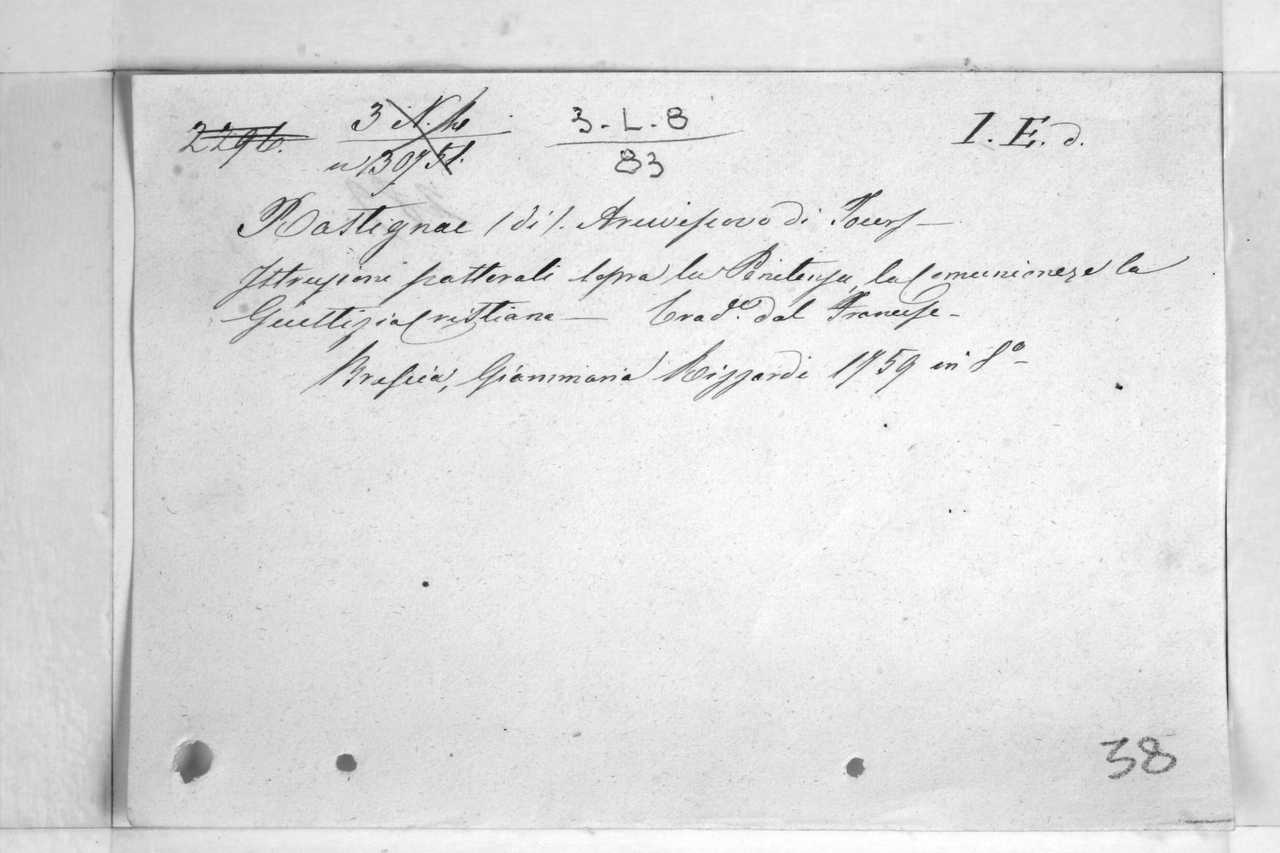 3-L-8
83
I. E. d.
Rastignac (di). Arcivescovo di Tours —
Istruzioni pastorali sopra la Penitenza, la Comunione, e la
Giustizia Cristiana — Trad.e dal Francese —
Brescia, Giammaria Rizzardi 1759 in 8o
38